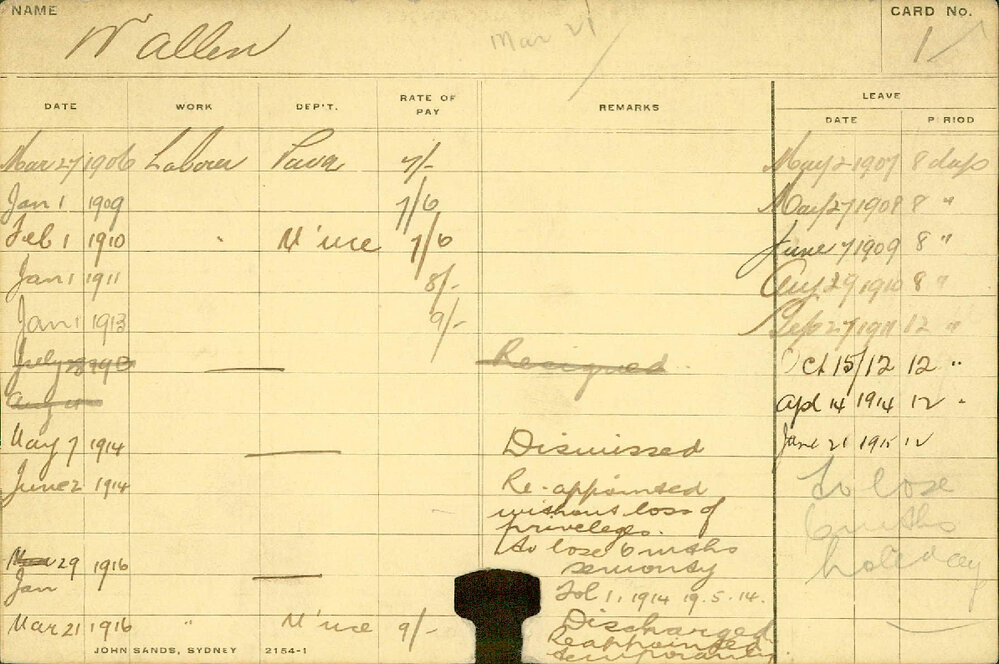 NAME
W Allen
Mar 21
CARD No.
1
DATE WORK DEP'T. RATE OF PAY REMARKS LEAVE
DATE PERIOD
Mar 27 1906 Laborer 7/- May 2 1907 8 days
Jan 1 1909 7/6 May 27 1908 8 "
Feb 1 1910 " M'nce 7/6 June 7 1909 8 "
Jan 1 1911 8/- Aug 29 1910 8 "
Jan 1 1913 9/- Sep 27 1911 12 "
July 1913 Resigned Oct 15/12 12 "
Aug Apl 14 1914 12 "
May 7 1914 Dismissed June 21 1915 12
June 2 1914 Re-appointed
without loss of
priveleges.
To lose 6 mths
holiday
29 1916 to lose 6 mths
Jan seniority
Feb 1, 1914 19.5.14.
Mar 21 1916 " M'nce 9/- Discharged
Reappointed
temporarily
JOHN SANDS, SYDNEY 2154-1